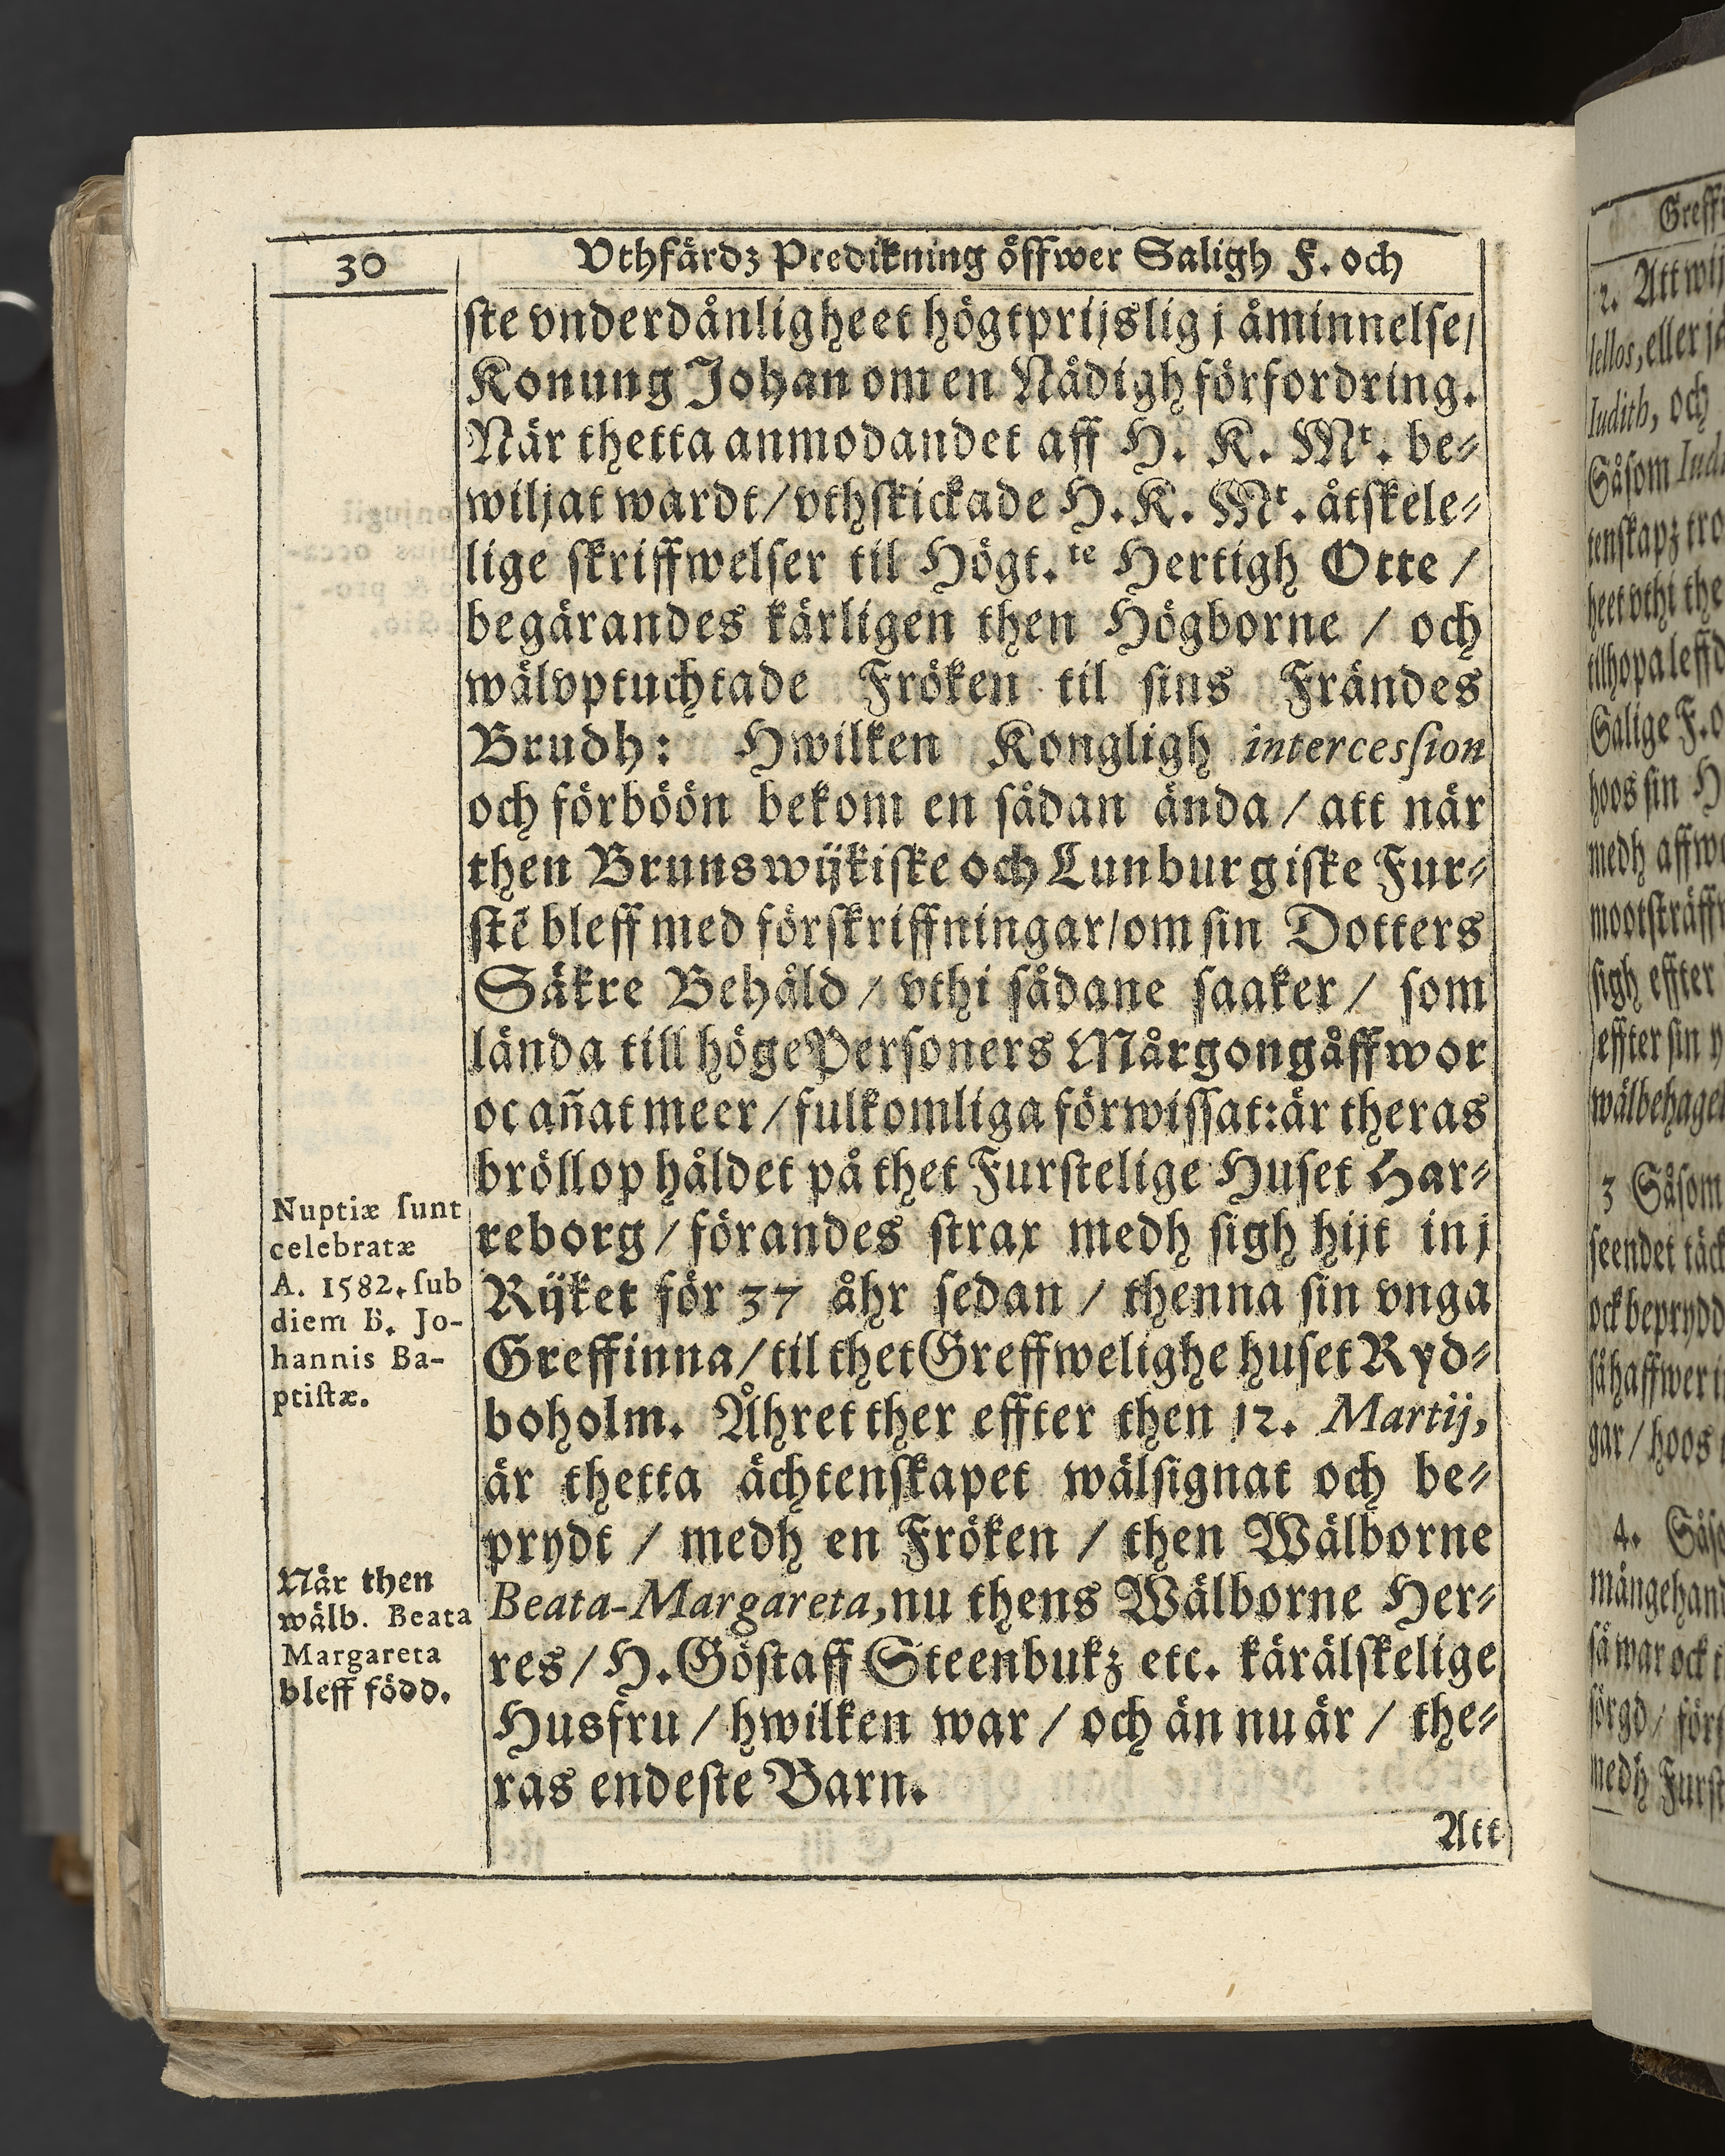 30
Vthfärdz Predikning öffwer Saligh F. och
ste vnderdånligheet högtprijslig j åminnelse/
Konung Johan om en Nådigh förfordring.
När thetta anmodandet aff H. K. Mt. be⸗
wiljat wardt/ vthskickade H. K. Mt. åtskele⸗
lige skriffwelser til Högt.te Hertigh Otte /
begärandes kärligen then Högborne / och
wälvptuchtade Fröken til sins Frändes
Brudh: Hwilken Kongligh intercesſion
och förböön bekom en sådan ända / att när
then Brunswÿkiske och Lunburgiske Fur⸗
stē bleff med förskriffningar/ om sin Dotters
Säkre Behåld / vthi sådane saaker / som
lända till höge Personers Mårgongåffwor
oc añat meer / fulkomliga förwissat: är theras
bröllop håldet på thet Furstelige Huset Har⸗
reborg / förandes strax medh sigh hijt in j
Rÿket för 37 åhr sedan / thenna sin vnga
Greffinna/ til thet Greffwelighe huset Ryd⸗
boholm. Åhret ther effter then 12. Martij,
är thetta ächtenskapet wälsignat och be⸗
prydt / medh en Fröken / then Wälborne
Beata-Margareta, nu thens Wälborne Her⸗
res/ H. Göstaff Steenbukz etc. kärälskelige
Husfru / hwilken war / och än nu är / the⸗
ras endeste Barn.
Att
Nuptiæ ſunt
celebratæ
A. 1582. ſub
diem B. Jo-
hannis Ba-
ptiſtæ.
När then
wälb. Beata
Margareta
bleff född.
Greff
2. Att wij
lellos, eller
Iudith, och
Såsom
tenskapz tro
heet vthi the
tilhopa leffd
Salige F. o
hoos sin H
medh
mootsträff
sigh effter
effter sin
wälbehage
3 Såsom
seendet täck
ock beprydd
så haffwer
gar / hoos
4. Såso
mångehand
så war ock
sörgd / förs
medh Furst